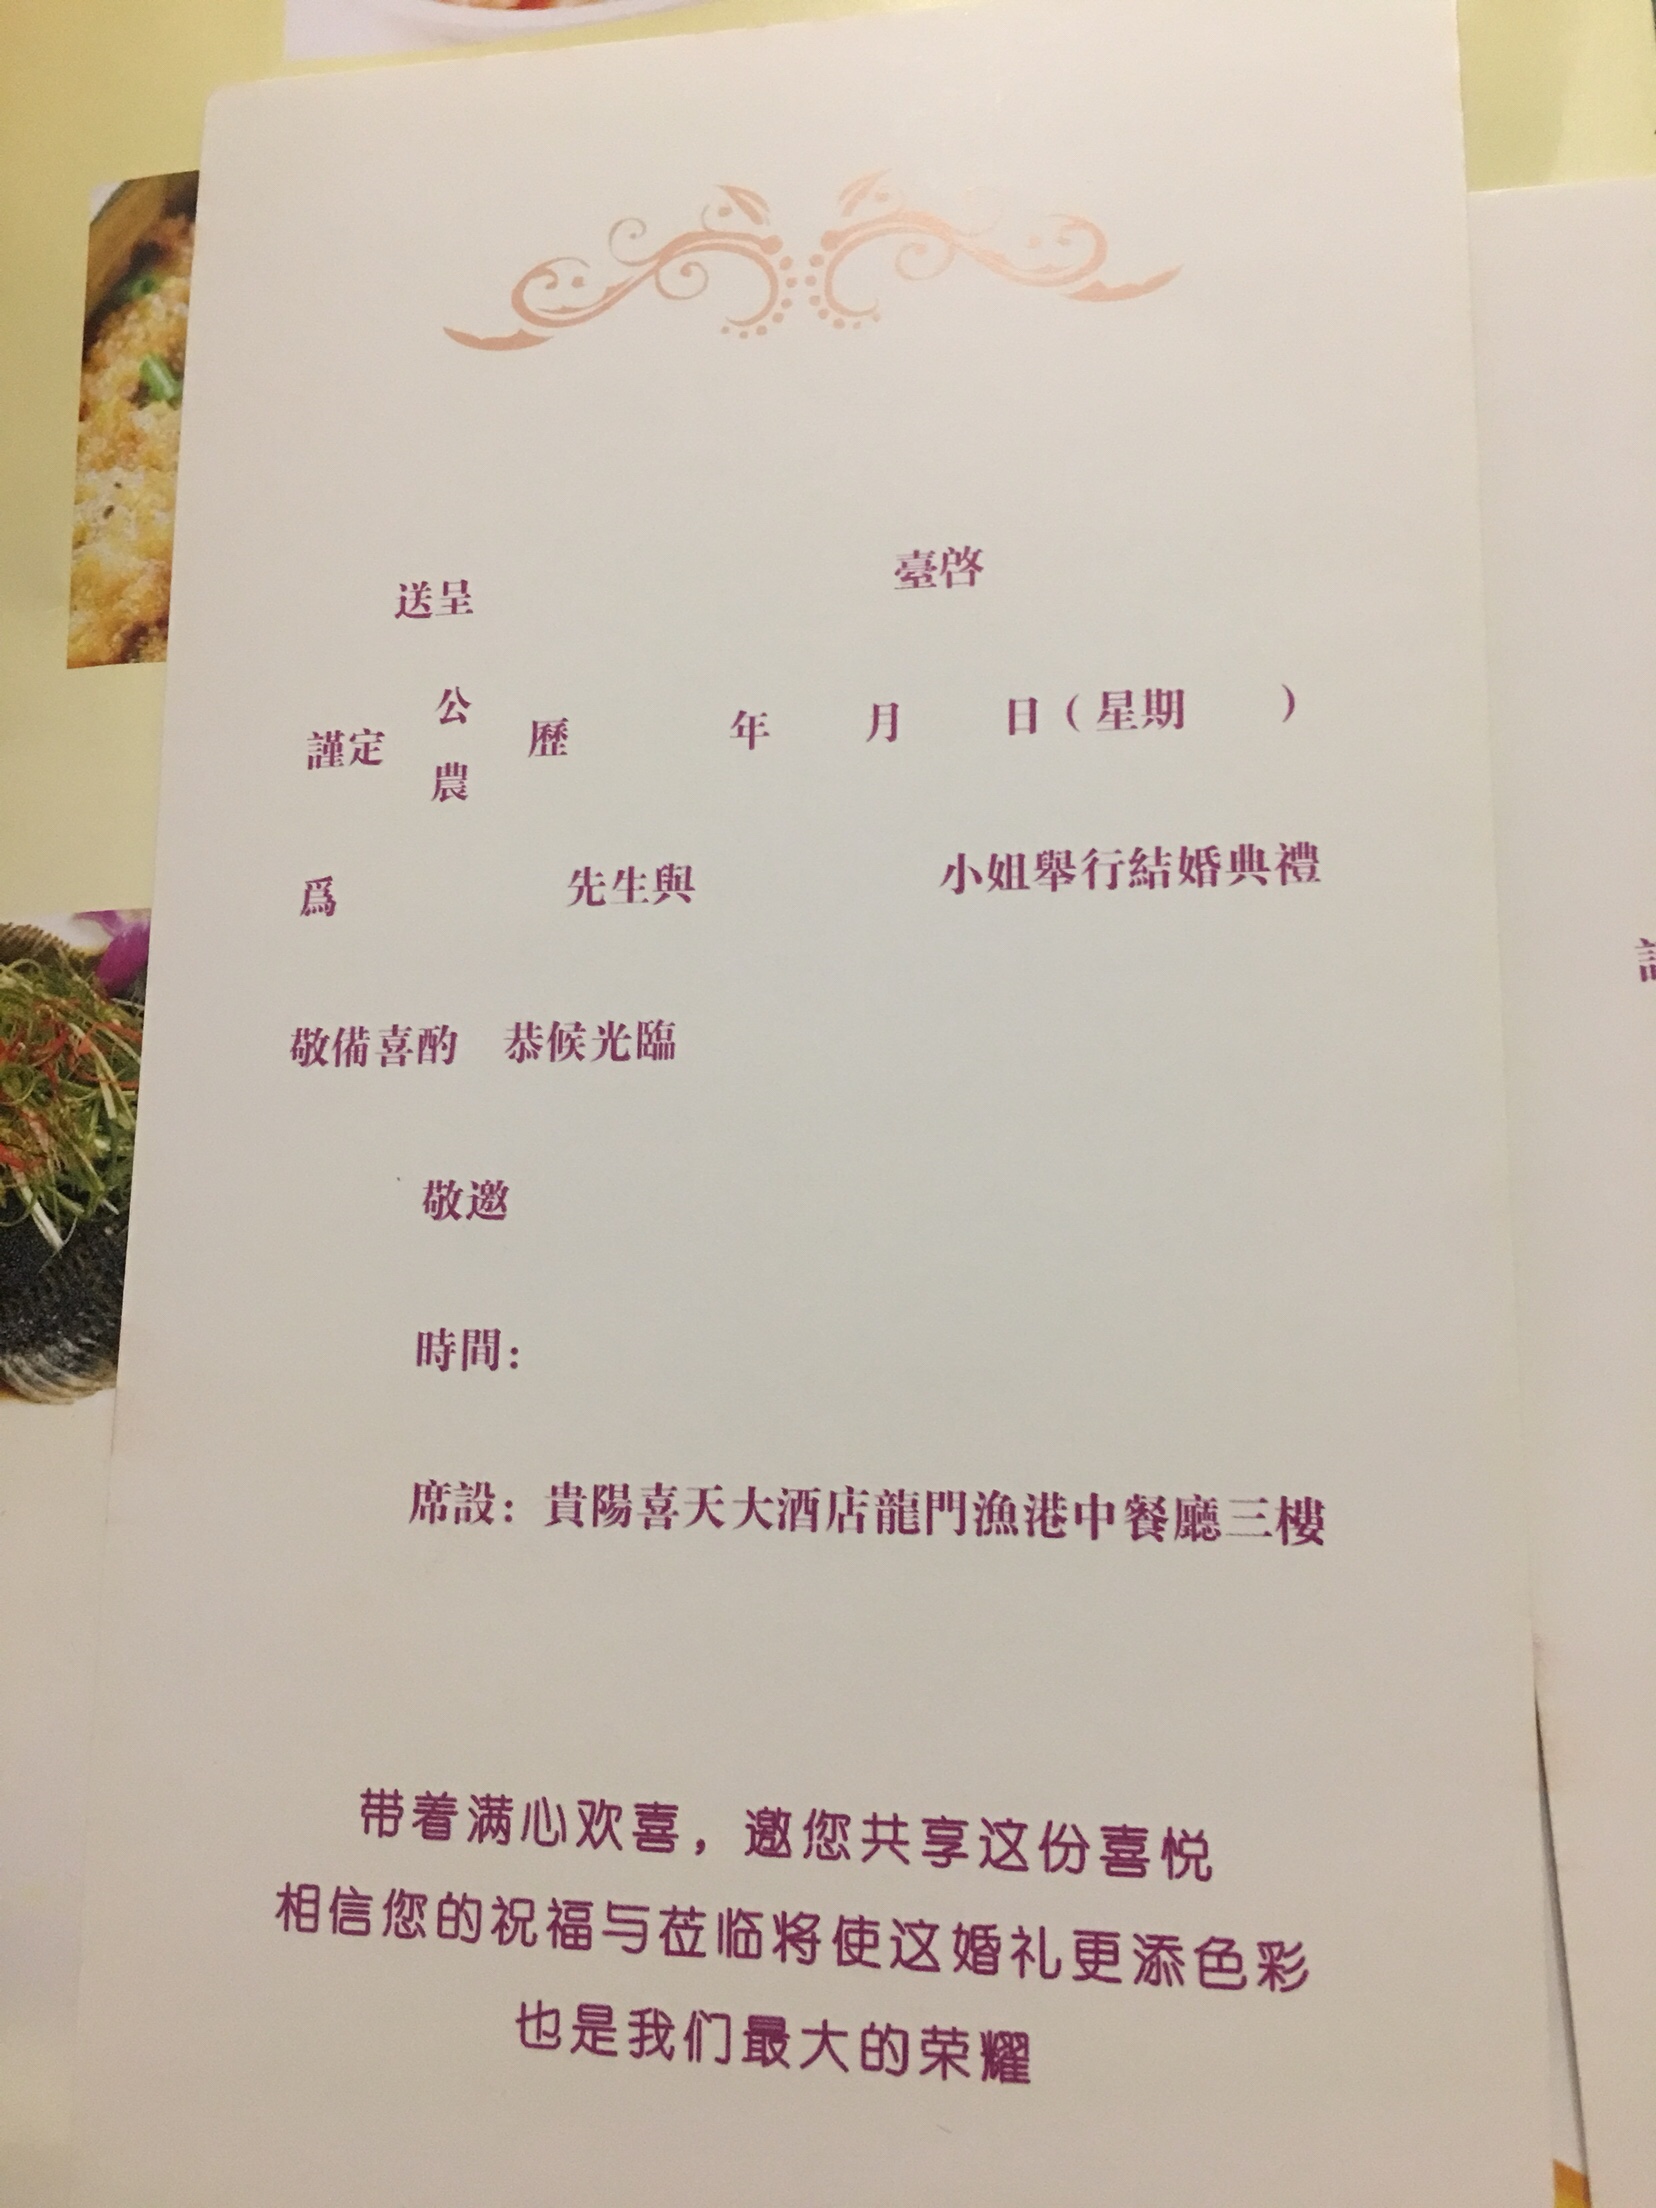 送呈 臺啓
謹定 公 農 歷 年 月 日（星期 ）
爲 先生與 小姐舉行結婚典禮
敬備喜酌 恭候光臨
敬邀
時間：
席設：貴陽喜天大酒店龍門漁港中餐廳三樓
带着满心欢喜，邀您共享这份喜悦
相信您的祝福与莅临将使这婚礼更添色彩
也是我们最大的荣耀